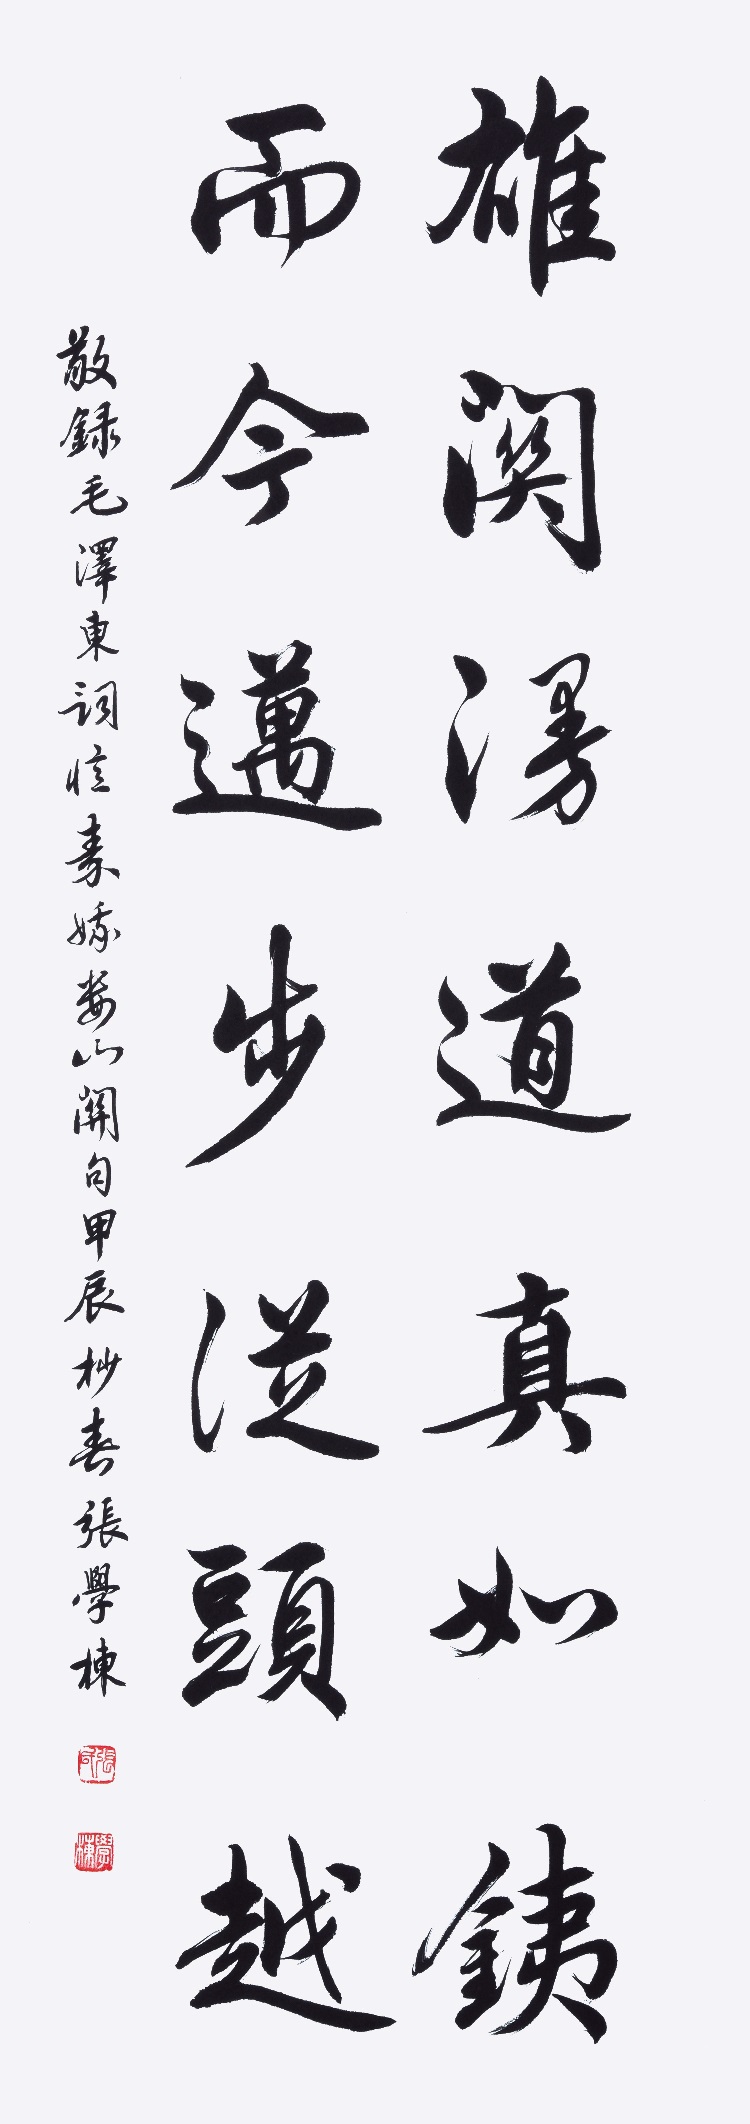 雄関漫道真如銕
而今邁步從頭越
敬録毛澤東詞憶秦娥婁山關句甲辰杪春張學棟
張
學棟